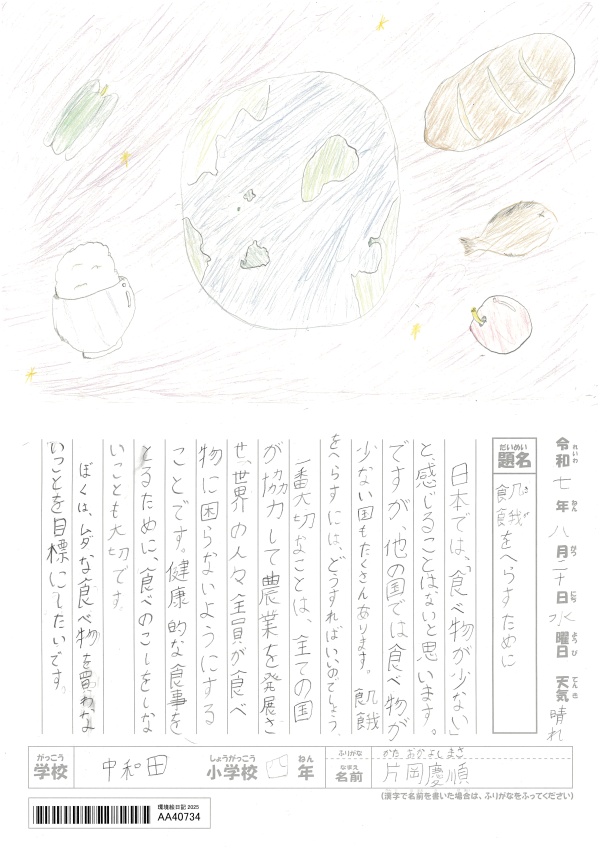 令和七年八月二十日水曜日 天気 晴れ
れいわ ねん がつ にち ようび てんき
題名 飢餓をへらすために
だいめい きが
日本では、「食べ物が少ない」
と、感じることはないと思います。
ですが、他の国では食べ物が
少ない国もたくさんあります。飢餓
をへらすには、どうすればいいのでしょう。
一番大切なことは、全ての国
が協力して農業を発展さ
せ、世界の人々全員が食べ
物に困らないようにする
ことです。健康的な食事を
とるために、食べのこしをしな
いことも大切です。
ぼくは、ムダな食べ物を買わな
いことを目標にしたいです。
がっこう しょうがっこう ねん ふりがな かたおかよしまさ
学校 中和田 小学校 四年 名前 片岡慶順
なまえ
(漢字で名前を書いた場合は、ふりがなをふってください)
環境絵日記 2025
AA40734